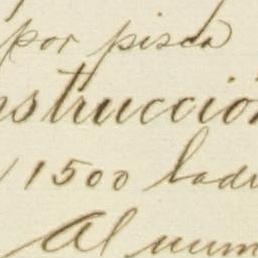 por pisca
nstrucción
1500 ladr
Al num